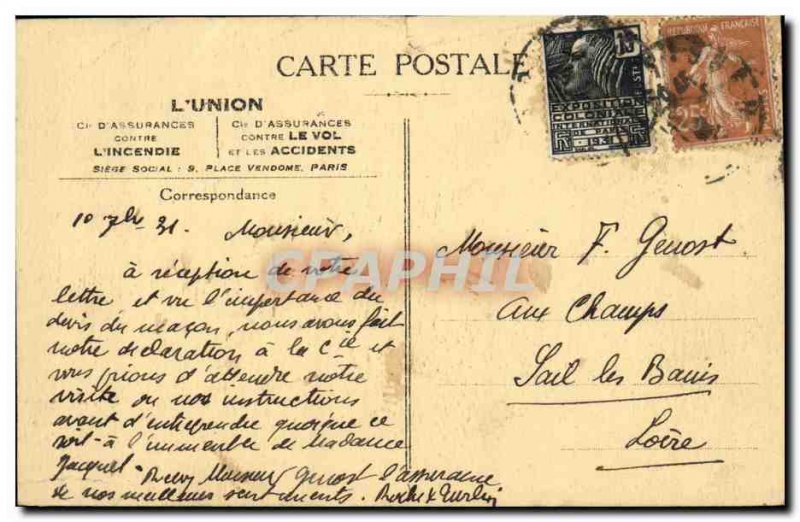 CARTE POSTALE
L'UNION
Cie D'ASSURANCES
CONTRE
L'INCENDIE
Cie D'ASSURANCES
CONTRE LE VOL
ET LES ACCIDENTS
SIÈGE SOCIAL : 9, PLACE VENDOME, PARIS
Correspondance
10 7bre 31. Monsieur,
à réception de votre
lettre et vu l'importance du
devis du maçon, nous avons fait
notre déclaration à la Cie et
vous prions d'attendre notre
visite ou nos instructions
avant d'entreprendre quoique ce
soit à l'immeuble de Madame
Jacquet. Recev Monsieur Genost l'assurance
de nos meilleurs sentiments.
Monsieur F. Genost
aux Champs
Sail les Bains
Loire
15
EXPOSITION
COLONIALE
INTERNATIONALE
DE PARIS
1931
RÉPUBLIQUE FRANÇAISE
25
CPAPHIL